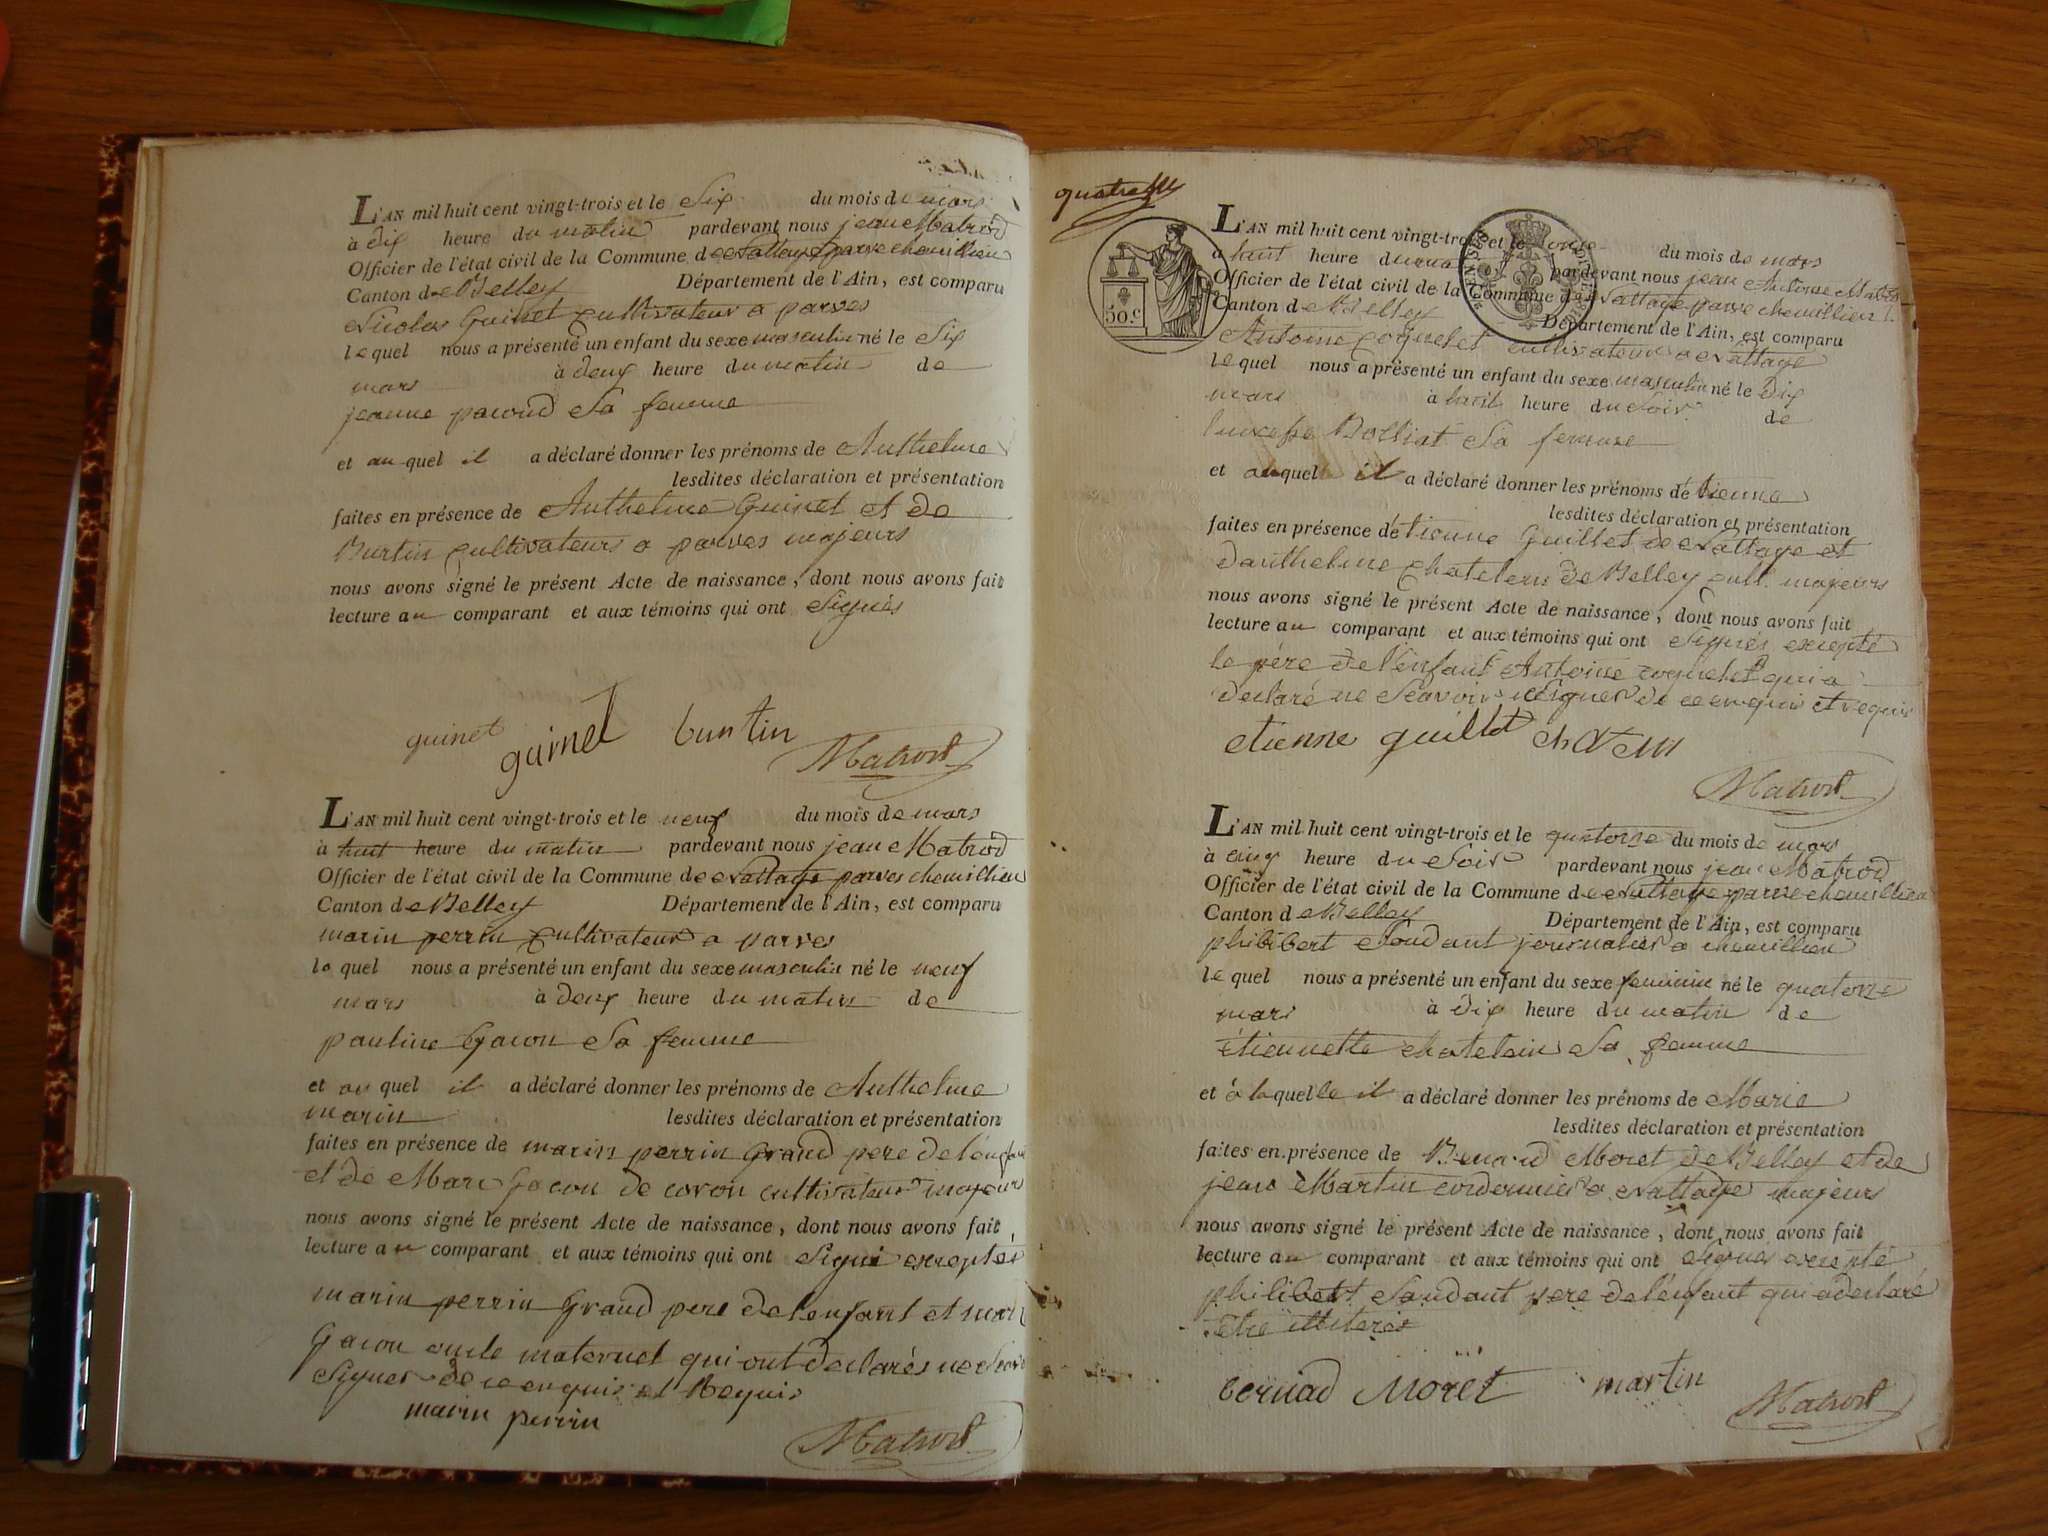 L'AN mil huit cent vingt-trois et le Six du mois de mars
à dix heure du matin pardevant nous jean Matrod
Officier de l'état civil de la Commune de Nattage parve chemillieu
Canton de Belley Département de l'Ain, est comparu
Nicolas Guinet cultivateur a parves
lequel nous a présenté un enfant du sexe masculin né le Six
mars à deux heure du matin de
jeanne pacoud Sa femme
et au quel il a déclaré donner les prénoms de Anthelme
lesdites déclaration et présentation
faites en présence de Anthelme Guinet et de
Burtin cultivateurs a parves majeurs
nous avons signé le présent Acte de naissance, dont nous avons fait
lecture au comparant et aux témoins qui ont Signés
guinet guinet burtin
Matrod
L'AN mil huit cent vingt-trois et le neuf du mois de mars
à huit heure du matin pardevant nous jean Matrod
Officier de l'état civil de la Commune de Nattage parves chemillieu
Canton de Belley Département de l'Ain, est comparu
marin perrin cultivateur a parves
le quel nous a présenté un enfant du sexe masculin né le neuf
mars à deux heure du matin de
pauline Gacon Sa femme
et au quel il a déclaré donner les prénoms de Anthelme
marin lesdites déclaration et présentation
faites en présence de marin perrin Grand pere de l'enfant
et de Marc Gacon de coron cultivateurs majeurs
nous avons signé le présent Acte de naissance, dont nous avons fait
lecture au comparant et aux témoins qui ont Signé exceptés
marin perrin Grand pere de l'enfant et marc
Gacon oncle maternel qui ont declarés ne Scavoir
Signer de ce enquis et Requis
marin perrin
Matrod
quatre
50.c
L'AN mil huit cent vingt-trois et le onze du mois de mars
à huit heure du pardevant nous jean Antoine Matrod
Officier de l'état civil de la Commune de Nattage parve chemillieu
Canton de Belley Département de l'Ain, est comparu
Antoine coquelet cultivateur a Nattage
lequel nous a présenté un enfant du sexe masculin né le dix
mars à huit heure du Soir de
Sa femme
et auquel il a déclaré donner les prénoms d'étienne
lesdites déclaration et présentation
faites en présence d'étienne Guillet de Nattage et
d'anthelme chatelain de Belley cult. majeurs
nous avons signé le présent Acte de naissance, dont nous avons fait
lecture au comparant et aux témoins qui ont Signés excepté
le père de l'enfant Antoine coquelet qui a
declaré ne Scavoir Signer de ce enquis et requis
etienne guillet
Matrod
L'AN mil huit cent vingt-trois et le quatorze du mois de mars
à cinq heure du Soir pardevant nous jean Matrod
Officier de l'état civil de la Commune de Nattage parve chemillieu
Canton de Belley Département de l'Ain, est comparu
philibert Soudant journalier a chemillieu
lequel nous a présenté un enfant du sexe feminin né le quatorze
mars à dix heure du matin de
étiennette chatelain Sa femme
et à laquelle il a déclaré donner les prénoms de Marie
lesdites déclaration et présentation
faites en présence de Bernard Moret de Belley et de
jean Martin cordonnier a Nattage majeurs
nous avons signé le présent Acte de naissance, dont nous avons fait
lecture au comparant et aux témoins qui ont Signés excepté
philibert Soudant pere de l'enfant qui a declaré
être illiteré
bernad Moret martin
Matrod